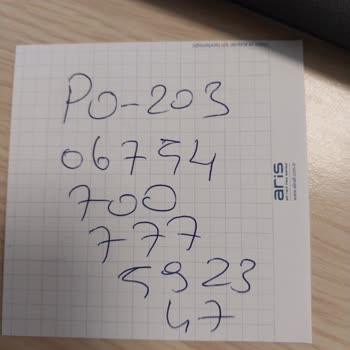 PO-203
06754
700
777
5923
47
aris